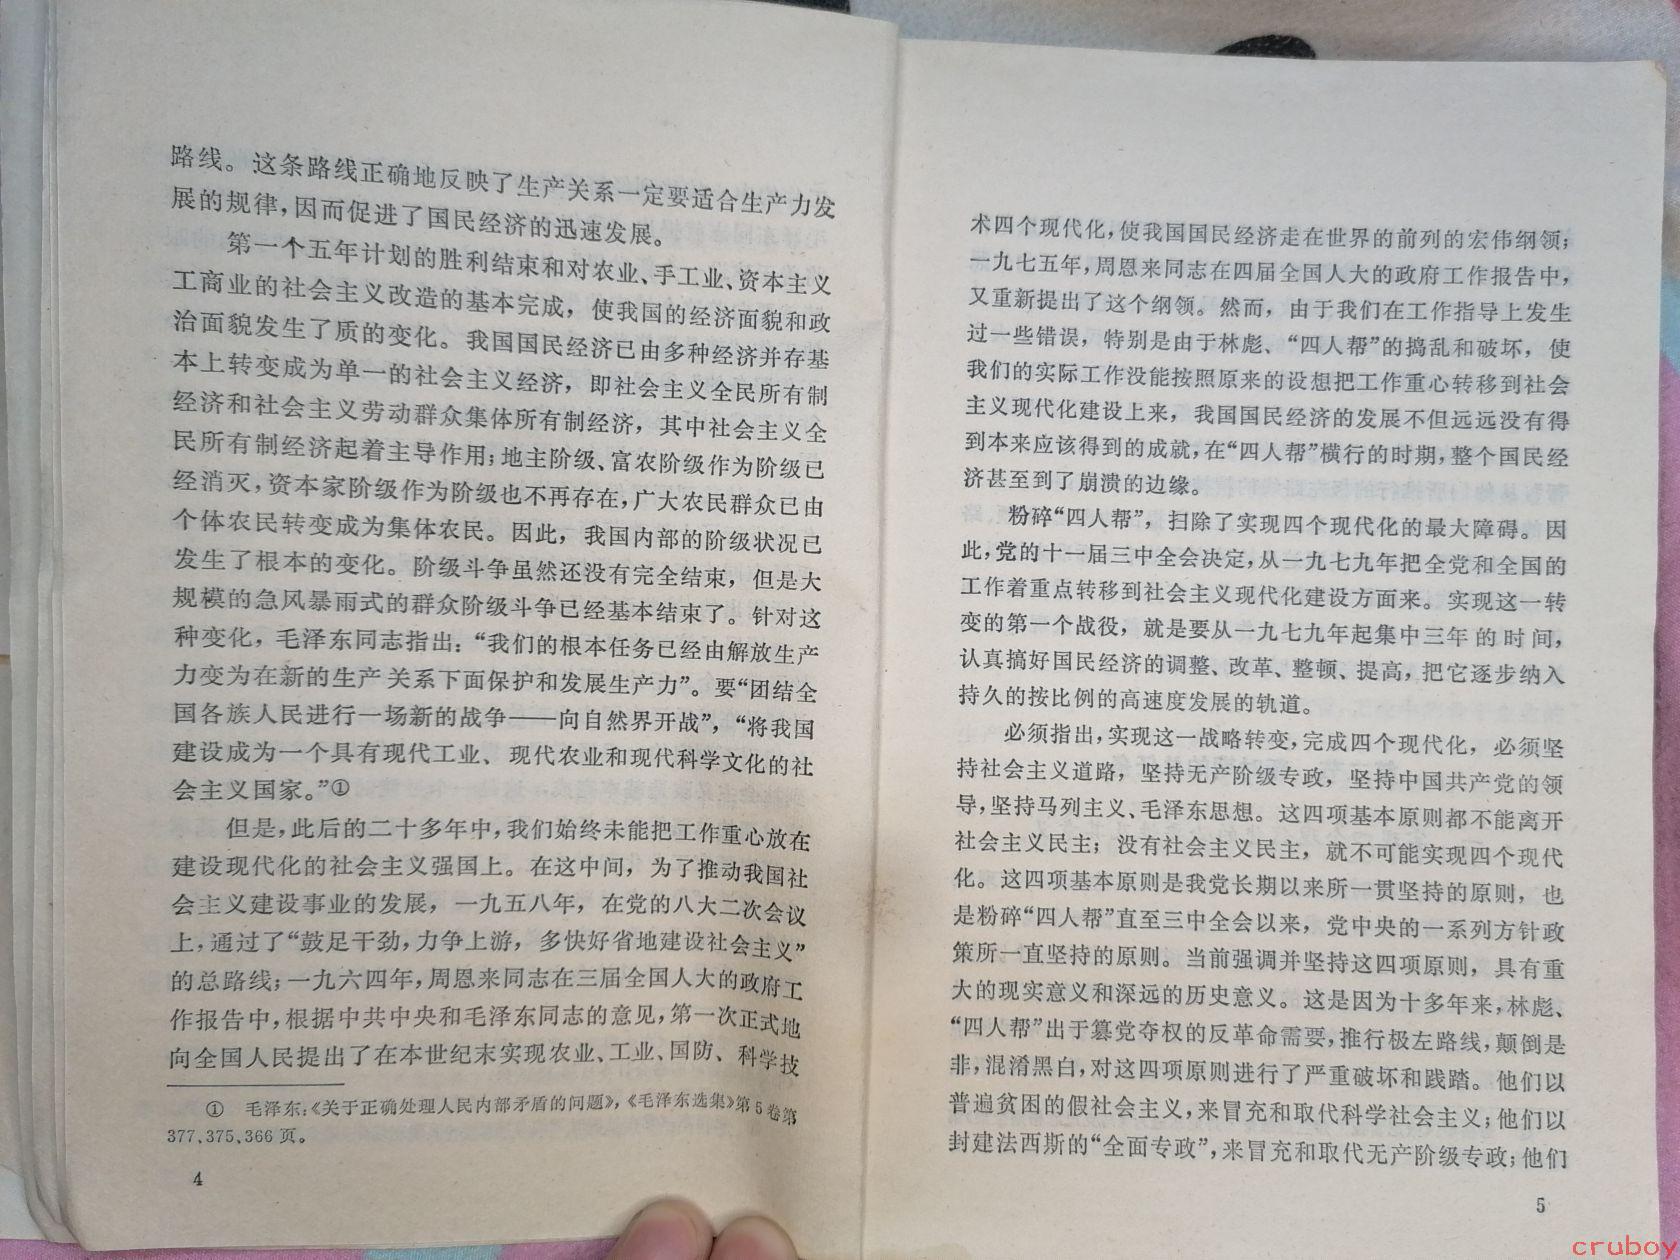 路线。这条路线正确地反映了生产关系一定要适合生产力发
展的规律，因而促进了国民经济的迅速发展。
第一个五年计划的胜利结束和对农业、手工业、资本主义
工商业的社会主义改造的基本完成，使我国的经济面貌和政
治面貌发生了质的变化。我国国民经济已由多种经济并存基
本上转变成为单一的社会主义经济，即社会主义全民所有制
经济和社会主义劳动群众集体所有制经济，其中社会主义全
民所有制经济起着主导作用；地主阶级、富农阶级作为阶级已
经消灭，资本家阶级作为阶级也不再存在，广大农民群众已由
个体农民转变成为集体农民。因此，我国内部的阶级状况已
发生了根本的变化。阶级斗争虽然还没有完全结束，但是大
规模的急风暴雨式的群众阶级斗争已经基本结束了。针对这
种变化，毛泽东同志指出：“我们的根本任务已经由解放生产
力变为在新的生产关系下面保护和发展生产力”。要“团结全
国各族人民进行一场新的战争——向自然界开战”，“将我国
建设成为一个具有现代工业、现代农业和现代科学文化的社
会主义国家。”①
但是，此后的二十多年中，我们始终未能把工作重心放在
建设现代化的社会主义强国上。在这中间，为了推动我国社
会主义建设事业的发展，一九五八年，在党的八大二次会议
上，通过了“鼓足干劲，力争上游，多快好省地建设社会主义”
的总路线；一九六四年，周恩来同志在三届全国人大的政府工
作报告中，根据中共中央和毛泽东同志的意见，第一次正式地
向全国人民提出了在本世纪末实现农业、工业、国防、科学技
① 毛泽东：《关于正确处理人民内部矛盾的问题》，《毛泽东选集》第5卷第
377、375、366页。
4
术四个现代化，使我国国民经济走在世界的前列的宏伟纲领；
一九七五年，周恩来同志在四届全国人大的政府工作报告中，
又重新提出了这个纲领。然而，由于我们在工作指导上发生
过一些错误，特别是由于林彪、“四人帮”的捣乱和破坏，使
我们的实际工作没能按照原来的设想把工作重心转移到社会
主义现代化建设上来，我国国民经济的发展不但远远没有得
到本来应该得到的成就，在“四人帮”横行的时期，整个国民经
济甚至到了崩溃的边缘。
粉碎“四人帮”，扫除了实现四个现代化的最大障碍。因
此，党的十一届三中全会决定，从一九七九年把全党和全国的
工作着重点转移到社会主义现代化建设方面来。实现这一转
变的第一个战役，就是要从一九七九年起集中三年的时间，
认真搞好国民经济的调整、改革、整顿、提高，把它逐步纳入
持久的按比例的高速度发展的轨道。
必须指出，实现这一战略转变，完成四个现代化，必须坚
持社会主义道路，坚持无产阶级专政，坚持中国共产党的领
导，坚持马列主义、毛泽东思想。这四项基本原则都不能离开
社会主义民主；没有社会主义民主，就不可能实现四个现代
化。这四项基本原则是我党长期以来所一贯坚持的原则，也
是粉碎“四人帮”直至三中全会以来，党中央的一系列方针政
策所一直坚持的原则。当前强调并坚持这四项原则，具有重
大的现实意义和深远的历史意义。这是因为十多年来，林彪、
“四人帮”出于篡党夺权的反革命需要，推行极左路线，颠倒是
非，混淆黑白，对这四项原则进行了严重破坏和践踏。他们以
普遍贫困的假社会主义，来冒充和取代科学社会主义；他们以
封建法西斯的“全面专政”，来冒充和取代无产阶级专政；他们
5
cruboy